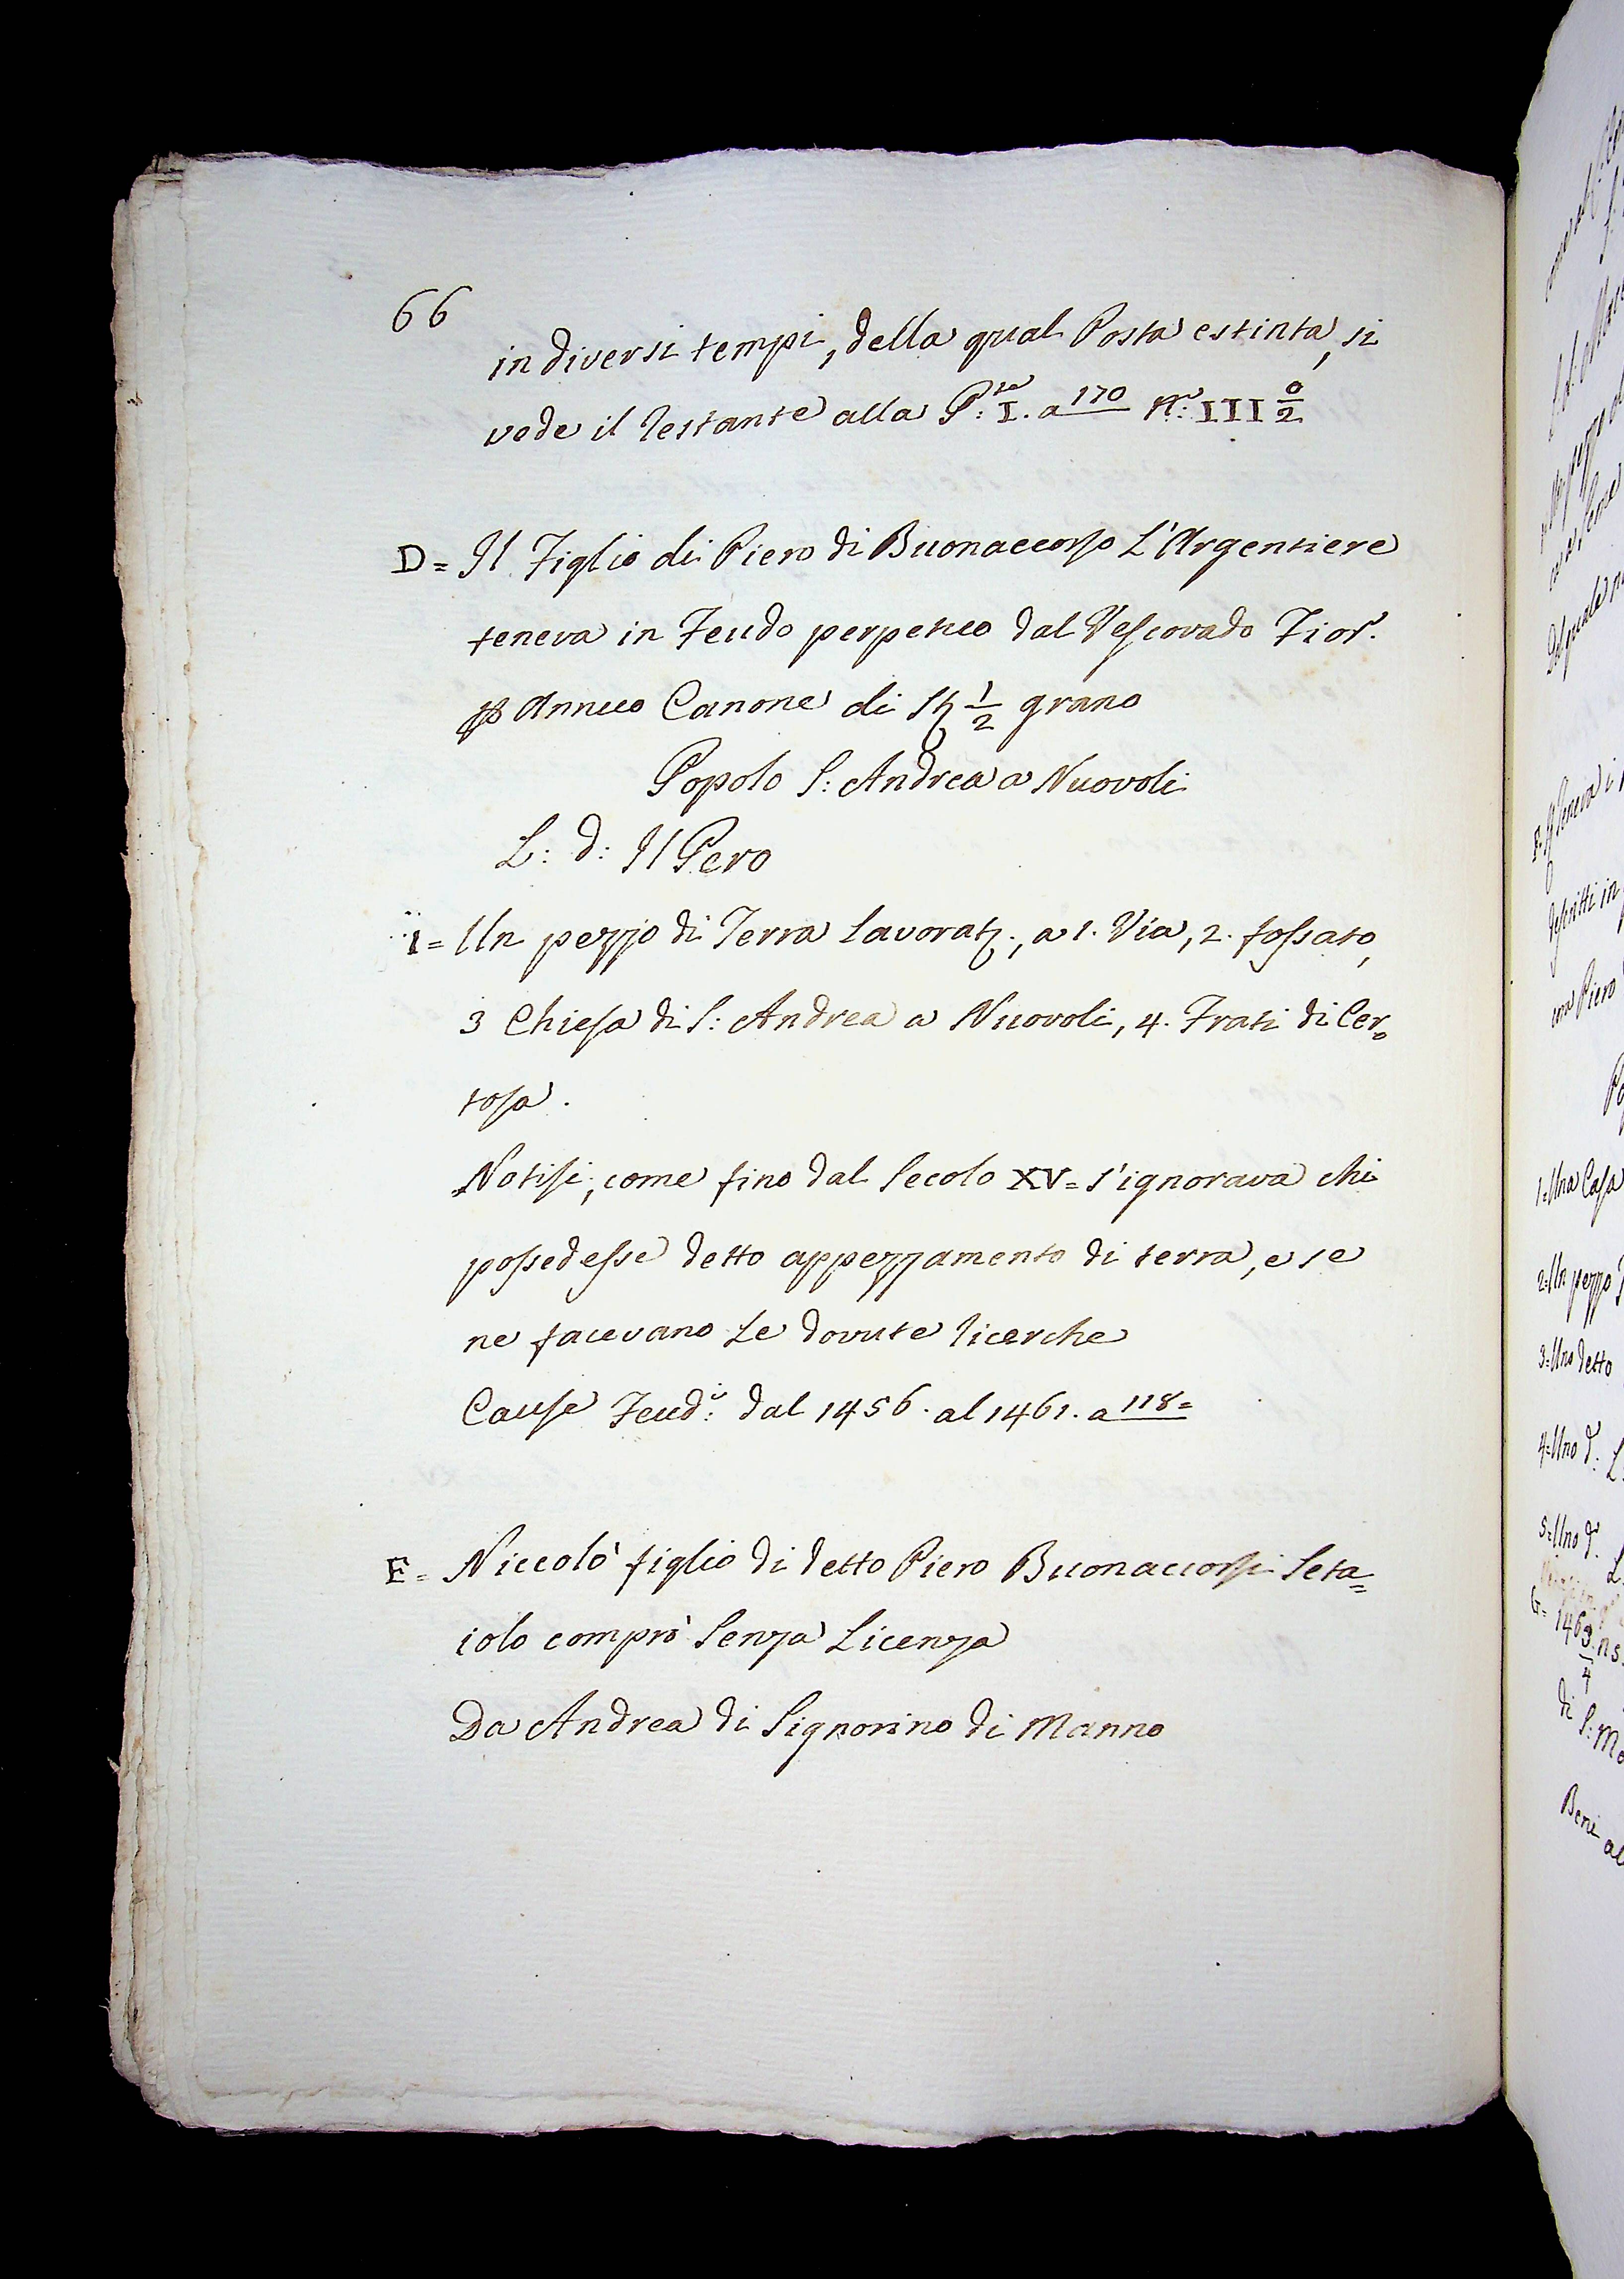 66
in diversi tempi, della qual Posta estinta, si
vede il restante alla P:te I. a 170 N:o III 0/2
D= Il Figlio di Piero di Buonaccorso L'Argentiere
teneva in Feudo perpetuo dal Vescovado Fior:o
p Annuo Canone di St 1/2 grano
Popolo S: Andrea a Nuovoli
L: d: Il Pero
1= Un pezzo di Terra Lavorat:, a 1. Via, 2. fossato,
3 Chiesa di S: Andrea a Nuovoli, 4. Frati di Cer=
tosa.
Notisi, come fino dal Secolo XV= s'ignorava chi
possedesse detto appezzamento di terra, e se
ne facevano Le dovute ricerche
Cause Feud:i dal 1456. al 1461. a 118=
E= Niccolò figlio di detto Piero Buonaccorsi Seta=
iolo comprò Senza Licenza
Da Andrea di Signorino di Manno
1=Una Casa
2=Un pezzo
3=Uno detto
4=Uno d:
5=Uno d: